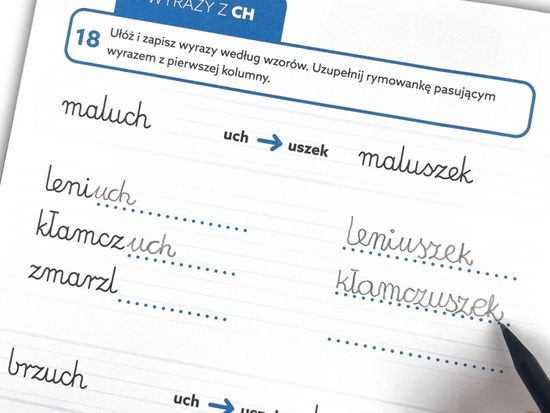 WYRAZY Z CH
18 Ułóż i zapisz wyrazy według wzorów. Uzupełnij rymowankę pasującym
wyrazem z pierwszej kolumny.
maluch uch → uszek maluszek
leniuch leniuszek
kłamczuch kłamczuszek
zmarzl
brzuch uch →